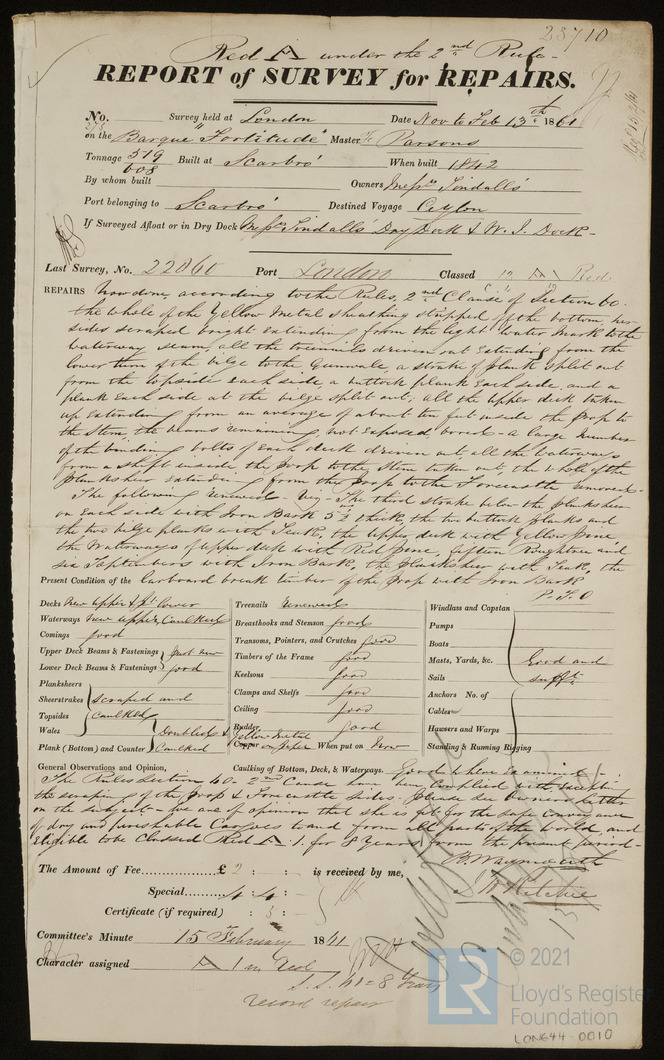 23710
Red A under the 2nd Rule
REPORT of SURVEY for REPAIRS.
No. Survey held at London Date Nov to Feb 13th 1861
on the Barque "Fortitude" Master Parsons
Tonnage 519 Built at Scarbro' When built 1842
608
By whom built Owners Messrs Tindalls
Port belonging to Scarbro' Destined Voyage Ceylon
If Surveyed Afloat or in Dry Dock Messrs Tindalls Dry Dock & W. I. Dock
Last Survey, No. 22860 Port London Classed 12 A Red
REPAIRS Now done, according to the Rules, 2nd Clause of Section 60.
the whole of the Yellow Metal sheathing stripped off the bottom her
sides scraped bright extending from the light Water Mark to the
waterway seam, all the treenails driven out extending from the
lower turn of the bilge to the Gunwale, a strake of plank split out
from the topside each side, a buttock plank each side, and a
plank each side at the bilge split out; all the upper deck taken
up extending from an average of about ten feet inside the Poop to
the Stem the beams remaining, not exposed, bored - a large number
of the binding bolts of each deck driven out all the Waterways
from a shift inside the poop to the Stem taken out, the whole of the
planksheer extending from the Poop to the Forecastle removed -
The following renewed - Viz - The third strake below the planksheer
on each side with Iron Bark 5½ thick, the two buttock planks and
the two bilge planks with Teak, the Upper deck with Yellow Pine
the Waterways of upper deck with Red Pine, fifteen Roughtree and
six Toptimbers with Iron Bark, the planksheer with Teak, the
Larboard break timber of the Poop with Iron Bark
P.T.O
Present Condition of the
Decks New upper & pt lower
Waterways New upper, Caulked
Comings good
Upper Deck Beams & Fastenings part new
Lower Deck Beams & Fastenings good
Planksheers
Sheerstrakes scraped and
Topsides Caulked
Wales Doubled &
Plank (Bottom) and Counter Caulked
Treenails renewed
Breasthooks and Stemson good
Transoms, Pointers, and Crutches good
Timbers of the Frame good
Keelsons good
Clamps and Shelfs good
Ceiling good
Rudder good
Yellow Metal
Copper on paper When put on Now
Windlass and Capstan
Pumps
Boats
Masts, Yards, &c. Good and
Sails sufft
Anchors No. of
Cables
Hawsers and Warps
Standing & Running Rigging
General Observations and Opinion, Caulking of Bottom, Deck, & Waterways. Good where examined -
The Rules Section 60 - 2nd Clause have been Complied with excepting
the scraping of the Poop & Forecastle sides. Please see Owners letter
on the subject - we are of opinion that she is fit for the safe conveyance
of dry and perishable Cargoes to and from all parts of the World, and
eligible to be Classed Red A. 1. for 8 Years from the present period -
The Amount of Fee £ 2 : - : - is received by me, B. Waymouth
Special 4 : 4 : - J. H. Ritchie
Certificate (if required) : 5 : -
Committee's Minute 15 February 1861
Character assigned A 1 in Red
S.S. 61 = 8 Years
record repair
LR
© 2021
Lloyd's Register
Foundation
LON644-0010